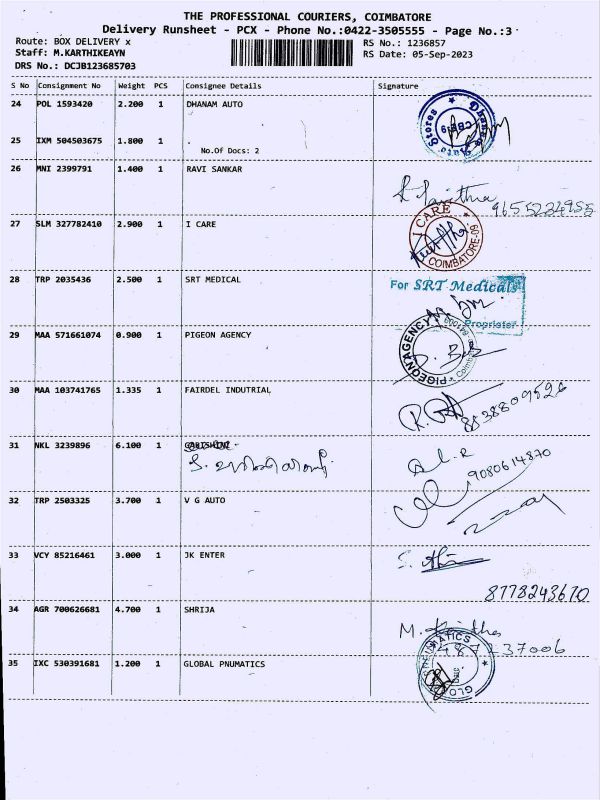 THE PROFESSIONAL COURIERS, COIMBATORE
Delivery Runsheet - PCX - Phone No.:0422-3505555 - Page No.:3
Route: BOX DELIVERY x
Staff: M.KARTHIKEAYN
DRS No.: DCJB123685703
RS No.: 1236857
RS Date: 05-Sep-2023
S No Consignment No Weight PCS Consignee Details Signature
24 POL 1593420 2.200 1 DHANAM AUTO
Dhanam Auto Stores
25 IXM 504503675 1.800 1
No.Of Docs: 2
26 MNI 2399791 1.400 1 RAVI SANKAR
9655234955
27 SLM 327782410 2.900 1 I CARE
I CARE
COIMBATORE-09
28 TRP 2035436 2.500 1 SRT MEDICAL
For SRT Medicals
Proprietor
29 MAA 571661074 0.900 1 PIGEON AGENCY
PIGEON AGENCY
30 MAA 103741765 1.335 1 FAIRDEL INDUTRIAL
8538809526
31 NKL 3239896 6.100 1
9080614870
32 TRP 2503325 3.700 1 V G AUTO
33 VCY 85216461 3.000 1 JK ENTER
8778243670
34 AGR 700626681 4.700 1 SHRIJA
487237006
35 IXC 530391681 1.200 1 GLOBAL PNUMATICS